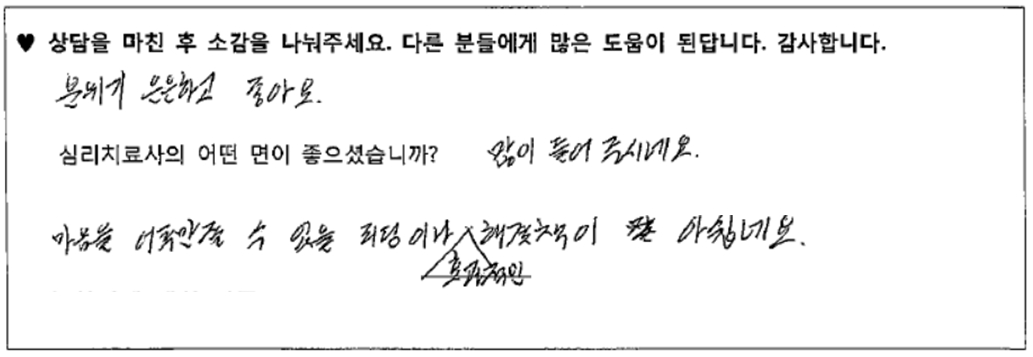 ♥ 상담을 마친 후 소감을 나눠주세요. 다른 분들에게 많은 도움이 된답니다. 감사합니다.
분위기 은은하고 좋아요.
심리치료사의 어떤 면이 좋으셨습니까? 많이 들어 주시네요.
마음을 어루만져줄 수 있을 이나 효과적인 해결책이 좀 아쉽네요.